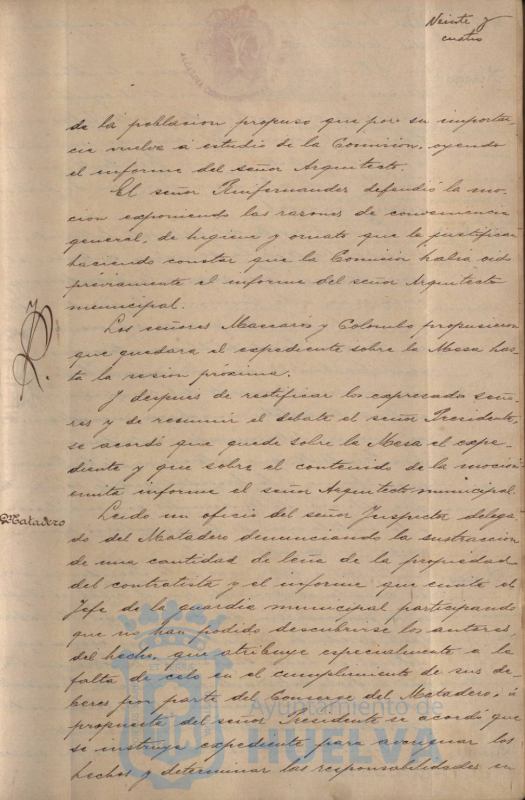 Veinte y
cuatro
de la poblacion propuso que por su importan-
cia vuelva á estudio de la Comisión, oyendo
el informe del señor Arquitecto.
El señor Rinfernandez defendió la mo-
cion exponiendo las razones de conveniencia
general, de higiene y ornato que la justifican
haciendo constar que la Comisión habia oido
préviamente el informe del señor Arquitecto
municipal.
Los señores Mascarós y Colombo propusieron
que quedara el expediente sobre la Mesa has-
ta la sesion próxima.
Y despues de rectificar los expresados seño-
res y de resumir el debate el señor Presidente,
se acordó que quede sobre la Mesa el expe-
diente y que sobre el contenido de la mocion
emita informe el señor Arquitecto municipal.
Matadero
Leido un oficio del señor Inspector delega-
do del Matadero denunciando la sustraccion
de una cantidad de leña de la propiedad
del contratista y el informe que emite el
Jefe de la guardia municipal participando
que no han podido descubrirse los autores
del hecho, que atribuye especialmente a la
falta de celo en el cumplimiento de sus de-
beres por parte del Conserje del Matadero, á
propuesta del señor Presidente se acordó que
se instruya expediente para averiguar los
hechos y determinar las responsabilidades en
Ayuntamiento de
HUELVA